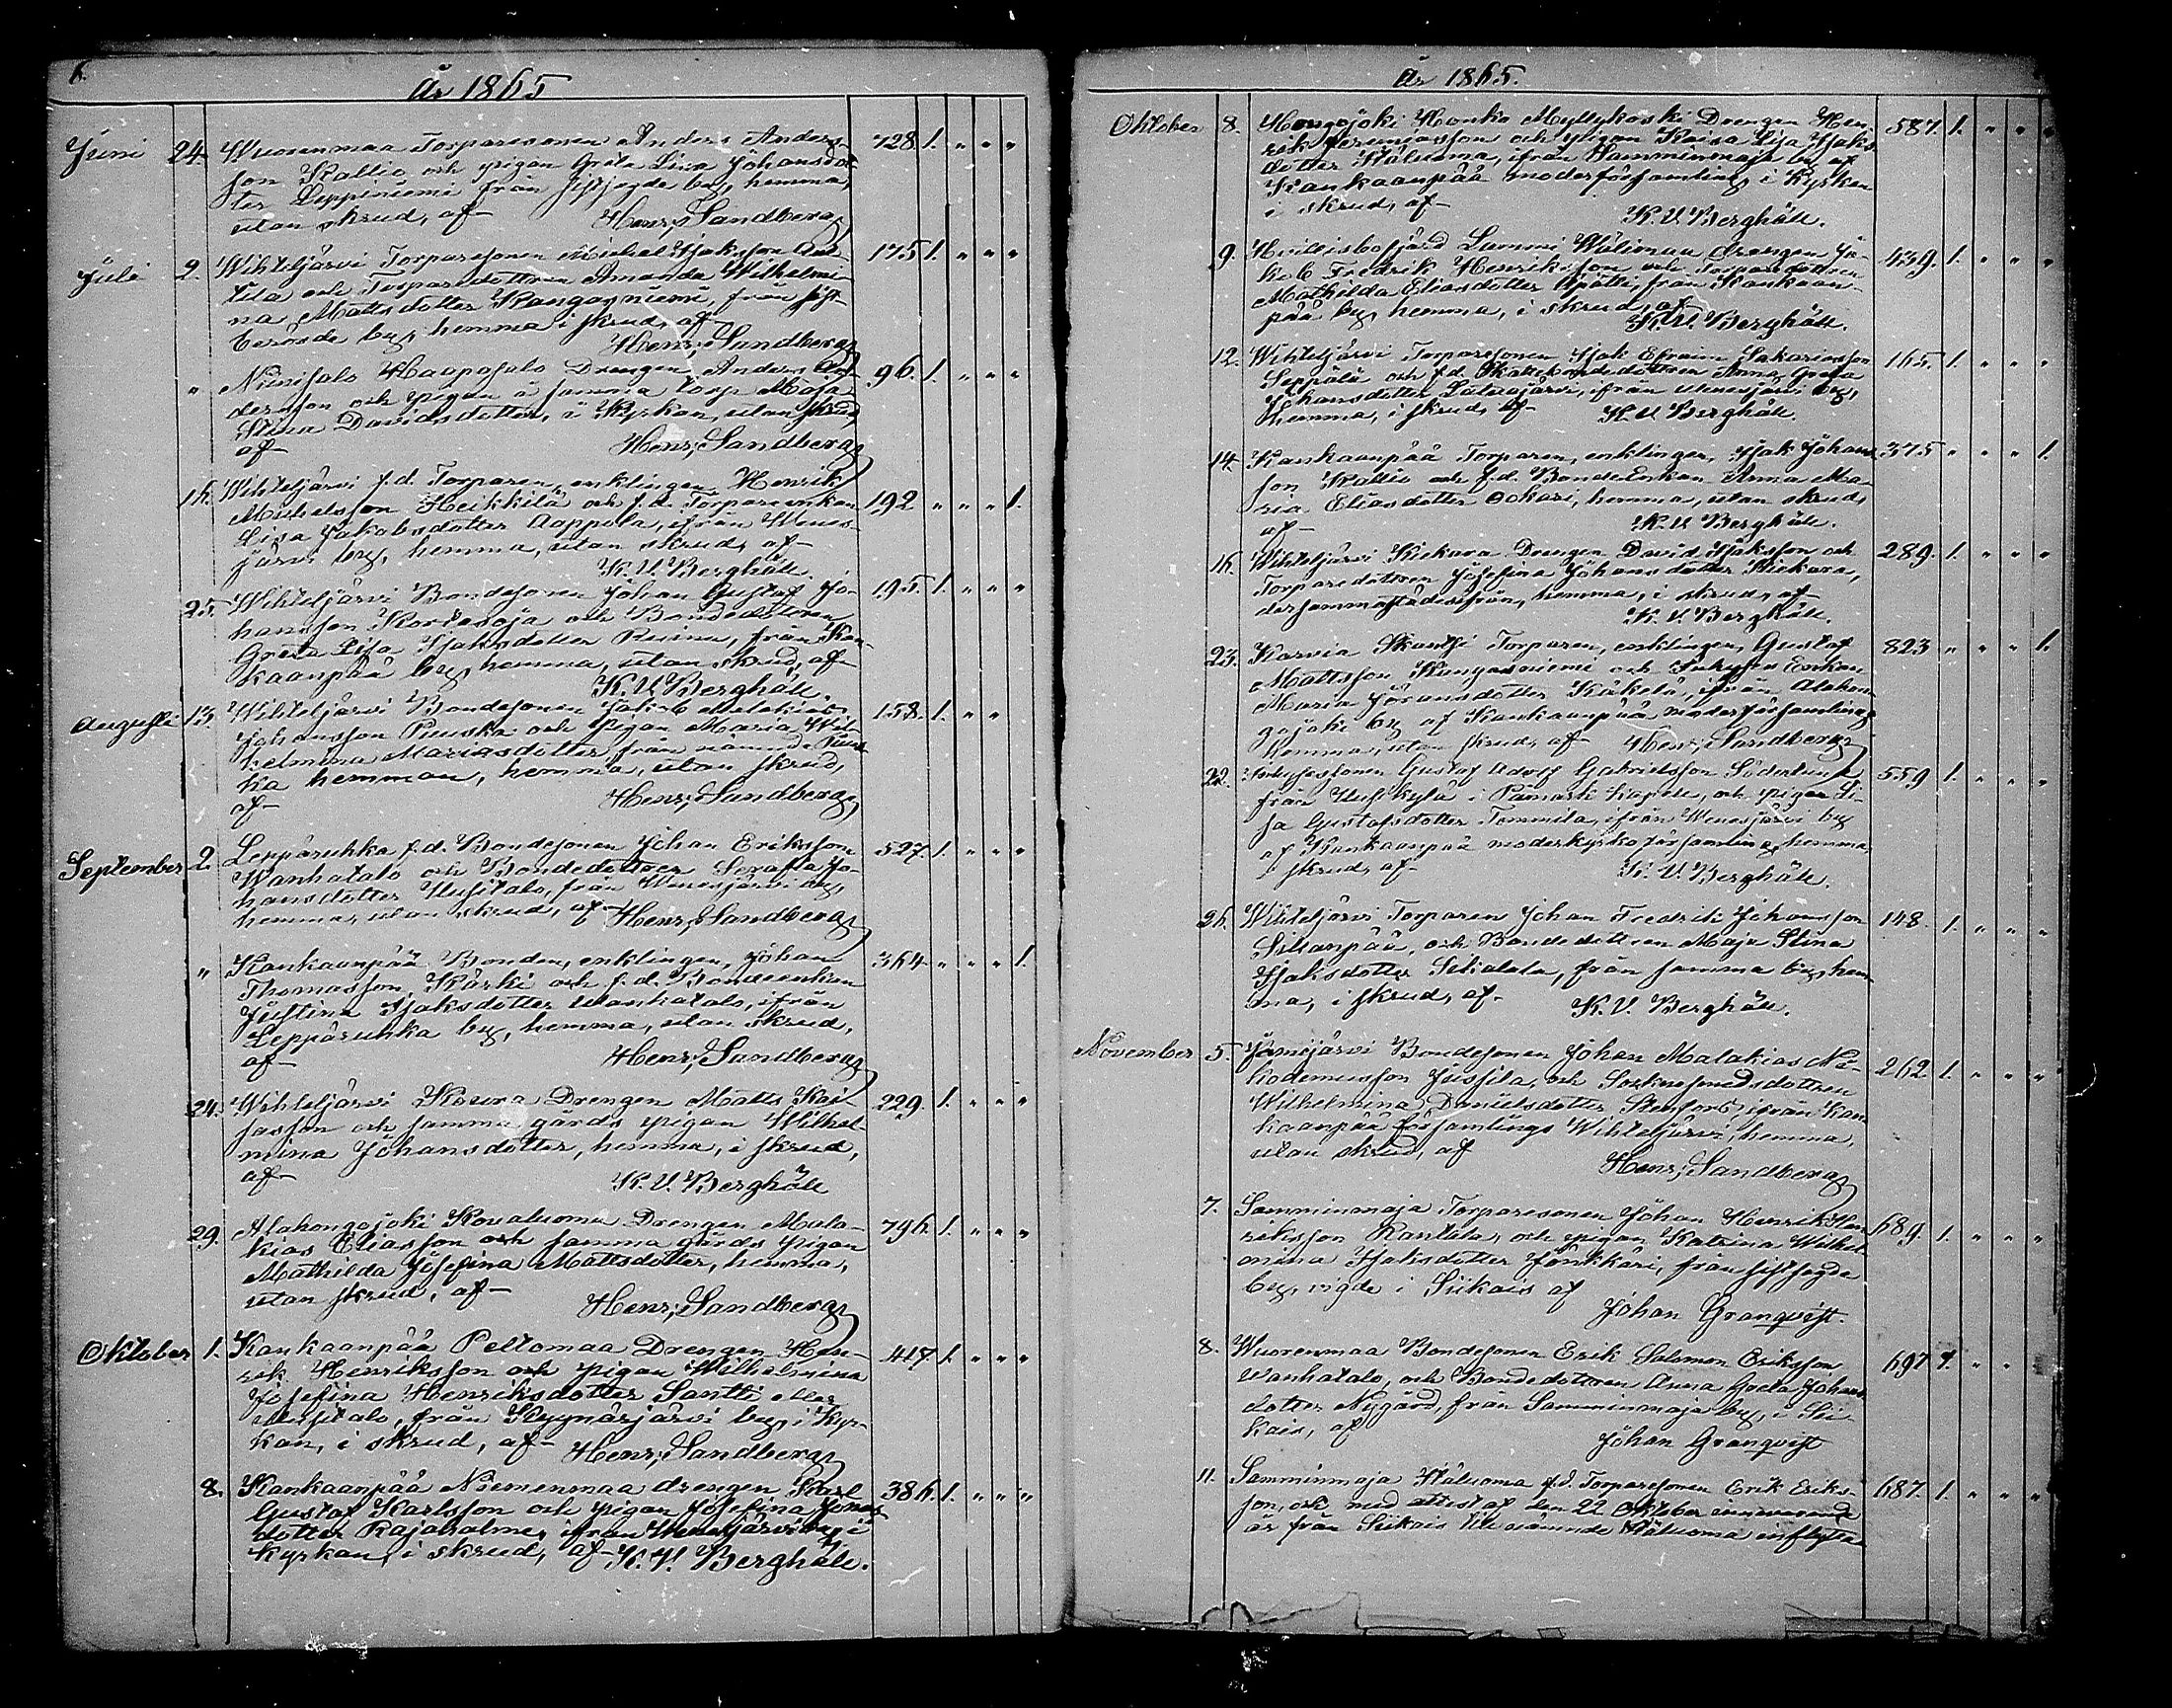 6.
År 1865
Juni 24. Wuorenmaa Torparesonen Anders Anders- 728. 1. " " "
son Kallio och pigan Greta Lisa Johansdot-
ter Leppiniemi från sistsagde by, hemma,
utan skrud, af Henr. Sandberg
Juli 2. Wihteljärvi Torparesonen Michel Isaksson 175 1. " " "
tila och Torparedottren Amanda Wilhelmi-
na Mattsdotter Kangasniemi, från sist-
berörde by, hemma i skrud, af
Henr. Sandberg
" Niinisalo Haapasalo Drengen Anders An- 96. 1. " " "
dersson och pigan å samma torp Maja
Stina Davidsdotter, i Kyrkan, utan skrud,
af Henr. Sandberg
16. Wihteljärvi f.d. Torparen, enklingen Henrik 192 " " " 1.
Michelsson Heikkilä och f.d. Torpareenkan
Lisa Jakobsdotter Aappola, ifrån Wenes-
järvi by, hemma, utan skrud, af
K. V. Berghäll.
25. Wihteljärvi Bondesonen Johan Gustaf Jo- 195. 1. " " "
hansson Kortesoja och Bondedottren
Greta Lisa Isaksdotter Ruinu, från Kan-
kaanpää by, hemma, utan skrud, af
K. V. Berghäll.
Augusti 13. Wihteljärvi Bondesonen Jakob Malakias 158. 1. " "
Johansson Puuska och Pigan Maria Wil-
helmina Mariasdotter, från nämnde Puus-
ka hemman, hemma, utan skrud,
af Henr. Sandberg
September 2. Leppäruhka f.d. Bondesonen Johan Eriksson 527. 1. " " "
Wanhatalo och Bondedottren Serafia Jo-
hansdotter Uusitalo, från Wenesjärvi by,
hemma, utan skrud, af Henr. Sandberg
" Kankaanpää Bonden, enklingen, Johan 364 " " " 1.
Thomasson Kärki och f.d. Bondeenkan
Justina Isaksdotter Wanhatalo, ifrån
Leppäruhka by, hemma, utan skrud,
af Henr. Sandberg
24. Wihteljärvi Koura Drengen Matts Kai- 229. 1. " " "
sasson och samma gårds pigan Wilhel-
mina Johansdotter, hemma, i skrud,
af K. V. Berghäll
29. Alahongojoki Kovaluoma Drengen Mala- 796. 1. " " "
kias Eliasson och samma gårds pigan
Mathilda Josefina Mattsdotter, hemma,
utan skrud, af Henr. Sandberg
Oktober 1. Kankaanpää Peltomaa Drengen Hen- 417. 1. " " "
rik Henriksson och pigan Wilhelmina
Josefina Henriksdotter Santti eller
Uusitalo, från Kyynärjärvi by, i Kyr-
kan, i skrud, af Henr. Sandberg
8. Kankaanpää Niemenmaa drengen Karl 386. 1. " " "
Gustaf Karlsson och pigan Josefina Jonas-
dotter Rajasalme, ifrån Wenesjärvi by, i
Kyrkan, i skrud, af K. V. Berghäll.
År 1865.
Oktober 8. Hongojoki Honko Myllykoski Drengen Hen- 587. 1. " " "
rik Jeremiasson och pigan Kaisa Lisa Isaks-
dotter Itäluoma, ifrån Samminmaja by af
Kankaanpää moderförsamling, i Kyrkan
i skrud, af
K. V. Berghäll.
9. Hvittisbofjärd Lummi drengen Ja- 439. 1. " " "
kob Fredrik Henriksson och Torparedottren
Mathilda Eliasdotter från Kankaan-
pää by, hemma, i skrud, af
K. V. Berghäll.
12. Wihteljärvi Torparesonen Isak Efraim Sakariasson 165. 1. " " "
Seppälä och f.d. dottren Anna Greta
Johansdotter ifrån Wenesjärvi by,
hemma, i skrud, af K. V. Berghäll.
14. Kankaanpää Torparen, enklingen, Isak Johans- 375 " " " 1.
son Kallio och f.d. BondeEnkan Anna Ma-
ria Eliasdotter Ockari, hemma, utan skrud,
af K. V. Berghäll.
16. Wihteljärvi Kiekara Drengen David Isaksson och 289. 1. " " "
Torparedottren Josefina Johansdotter Kiekara,
dersammastädesifrån, hemma, i skrud, af
K. V. Berghäll.
23. Karvia Skantsi Torparen, enklingen, Gustaf 823 " " " 1.
Mattsson Kangasniemi och Inhyses Enkan
Maria Göransdotter Käkelä, ifrån Alahon-
gojoki by af Kankaanpää moderförsamling,
hemma, utan skrud, af Henr. Sandberg
22. Inhysessonen Gustaf Adolf Gabrielsson Söderlund 559 1. " " "
från Uusikylä i Påmark Kapell, och pigan Li-
sa Gustafsdotter Tommila, ifrån Wenesjärvi by
af Kankaanpää moderkyrkoförsamling, hemma,
i skrud, af K. V. Berghäll.
26. Wihteljärvi Torparen Johan Fredrik Johansson 148. 1. " " "
Sillanpää, och Bondedottren Maja Stina
Isaksdotter från samma by, hem-
ma, i skrud, af K. V. Berghäll.
November 5. Jämijärvi Bondesonen Johan Malakias Ni- 262. 1. " " "
kodemusson Jussila, och Sockensmedsdottren
Wilhelmina Danielsdotter Stenfors, ifrån Kan-
kaanpää församlings Wihteljärvi, hemma,
utan skrud, af
Henr. Sandberg
7. Samminmaja Torparesonen Johan Henrik Hen- 689. 1. " " "
riksson Rantala, och pigan Katrina Wilhel-
mina Isaksdotter Jönkkäri, från sistsagde
by, vigde i Siikais af
Johan Granqvist.
8. Wuorenmaa Bondesonen Erik Salomon Eriksson 697 1. " " "
Wanhatalo, och Bondedottren Anna Greta Johans-
dotter Nygård, från Samminmaja by, i Sii-
kais, af
Johan Granqvist
11. Samminmaja Itäluoma f.d. Torparesonen Erik Eriks- 687. 1. " " "
son, och med attest af den 22 Oktober innevarande
år från Siikais till nämnde Itäluoma inflytta-